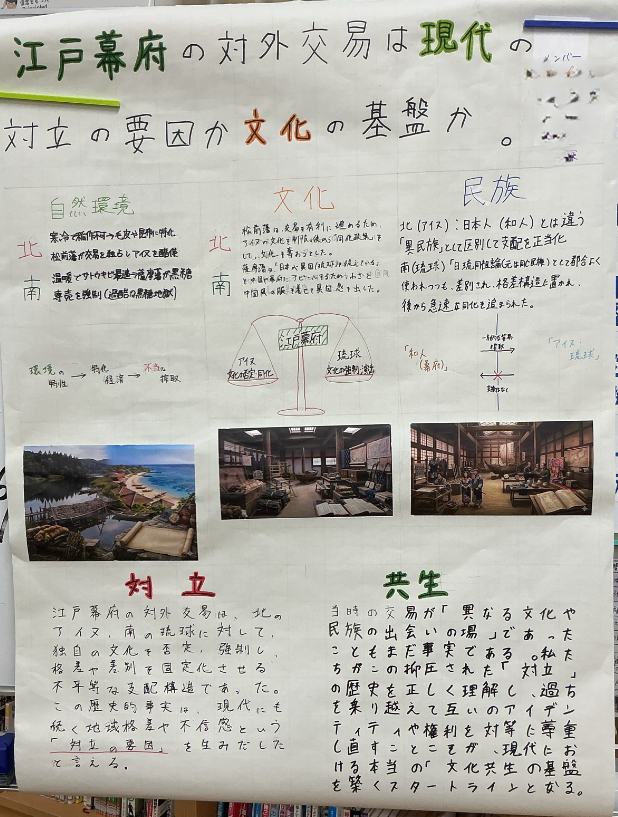 江戸幕府の対外交易は現代の
対立の要因か文化の基盤か。
メンバー
自然環境
北
寒冷で稲作不可→毛皮や昆布に特化
松前藩が交易を独占しアイヌを酷使
南
温暖でサトウキビ最適→薩摩藩が黒糖
専売を強制(過酷な黒糖地獄)
環境の
特性
→
特化
経済
→
不当な
搾取
文化
北
松前藩は、交易を有利に進めるため、
アイヌの文化を制限し後から「同化政策」を
して、文化を奪おうとした。
南
薩摩藩は「日本が異国(琉球)を従えている」
中国風の服を着せて異国感を出した。
江戸幕府
アイヌ
文化の否定・同化
琉球
文化の強制・演出
民族
北(アイヌ):日本人(和人)とは違う
「異民族」として区別して支配を正当化
南(琉球)「日琉同祖論(元は同じ民族)」として都合よく
使われつつも、差別され、格差構造に置かれ、
後から急速な同化を迫まられた。
「和人
(幕府)」
「アイヌ・
琉球」
対立
江戸幕府の対外交易は、北の
アイヌ、南の琉球に対して、
独自の文化を否定、強制し、
格差や差別を固定化させる
不平等な支配構造であった。
この歴史的事実は、現代にも
続く地域格差や不信感という
「対立の要因」を生みだした
と言える。
共生
当時の交易が「異なる文化や
民族の出会いの場」であった
こともまだ事実である。私た
ちがこの抑圧された「対立」
の歴史を正しく理解し、過ち
を乗り越えて互いのアイデン
ティティや権利を対等に尊重
し直すことこそが、現代にお
ける本当の「文化共生の基盤
を築くスタートラインとなる。